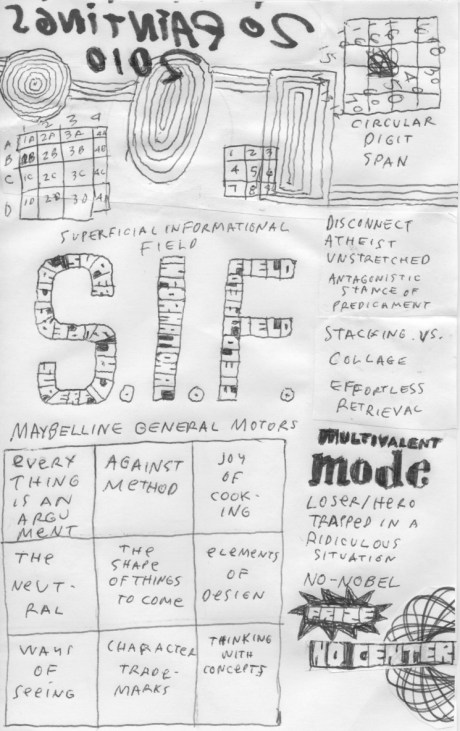 20 PAINTINGS
2010
CIRCULAR
DIGIT
SPAN
1 2 3 4
A 1A 2A 3A 4A
B 1B 2B 3B 4B
C 1C 2C 3C 4C
D 1D 2D 3D
1 2 3
4 5 6
7 8
SUPERFICIAL INFORMATIONAL
FIELD
S.I.F.
DISCONNECT
ATHEIST
UNSTRETCHED
ANTAGONISTIC
STANCE OF
PREDICAMENT
STACKING VS.
COLLAGE
EFFORTLESS
RETRIEVAL
MAYBELLINE GENERAL MOTORS
EVERY
THING
IS AN
ARGU
MENT
AGAINST
METHOD
JOY
OF
COOK-
ING
THE
NEUT-
RAL
THE
SHAPE
OF THINGS
TO COME
ELEMENTS
OF
DESIGN
WAYS
OF
SEEING
CHARACTER
TRADE-
MARKS
THINKING
WITH
CONCEPTS
MULTIVALENT
mode
LOSER/HERO
TRAPPED IN A
RIDICULOUS
SITUATION
NO-NOBEL
NO CENTER